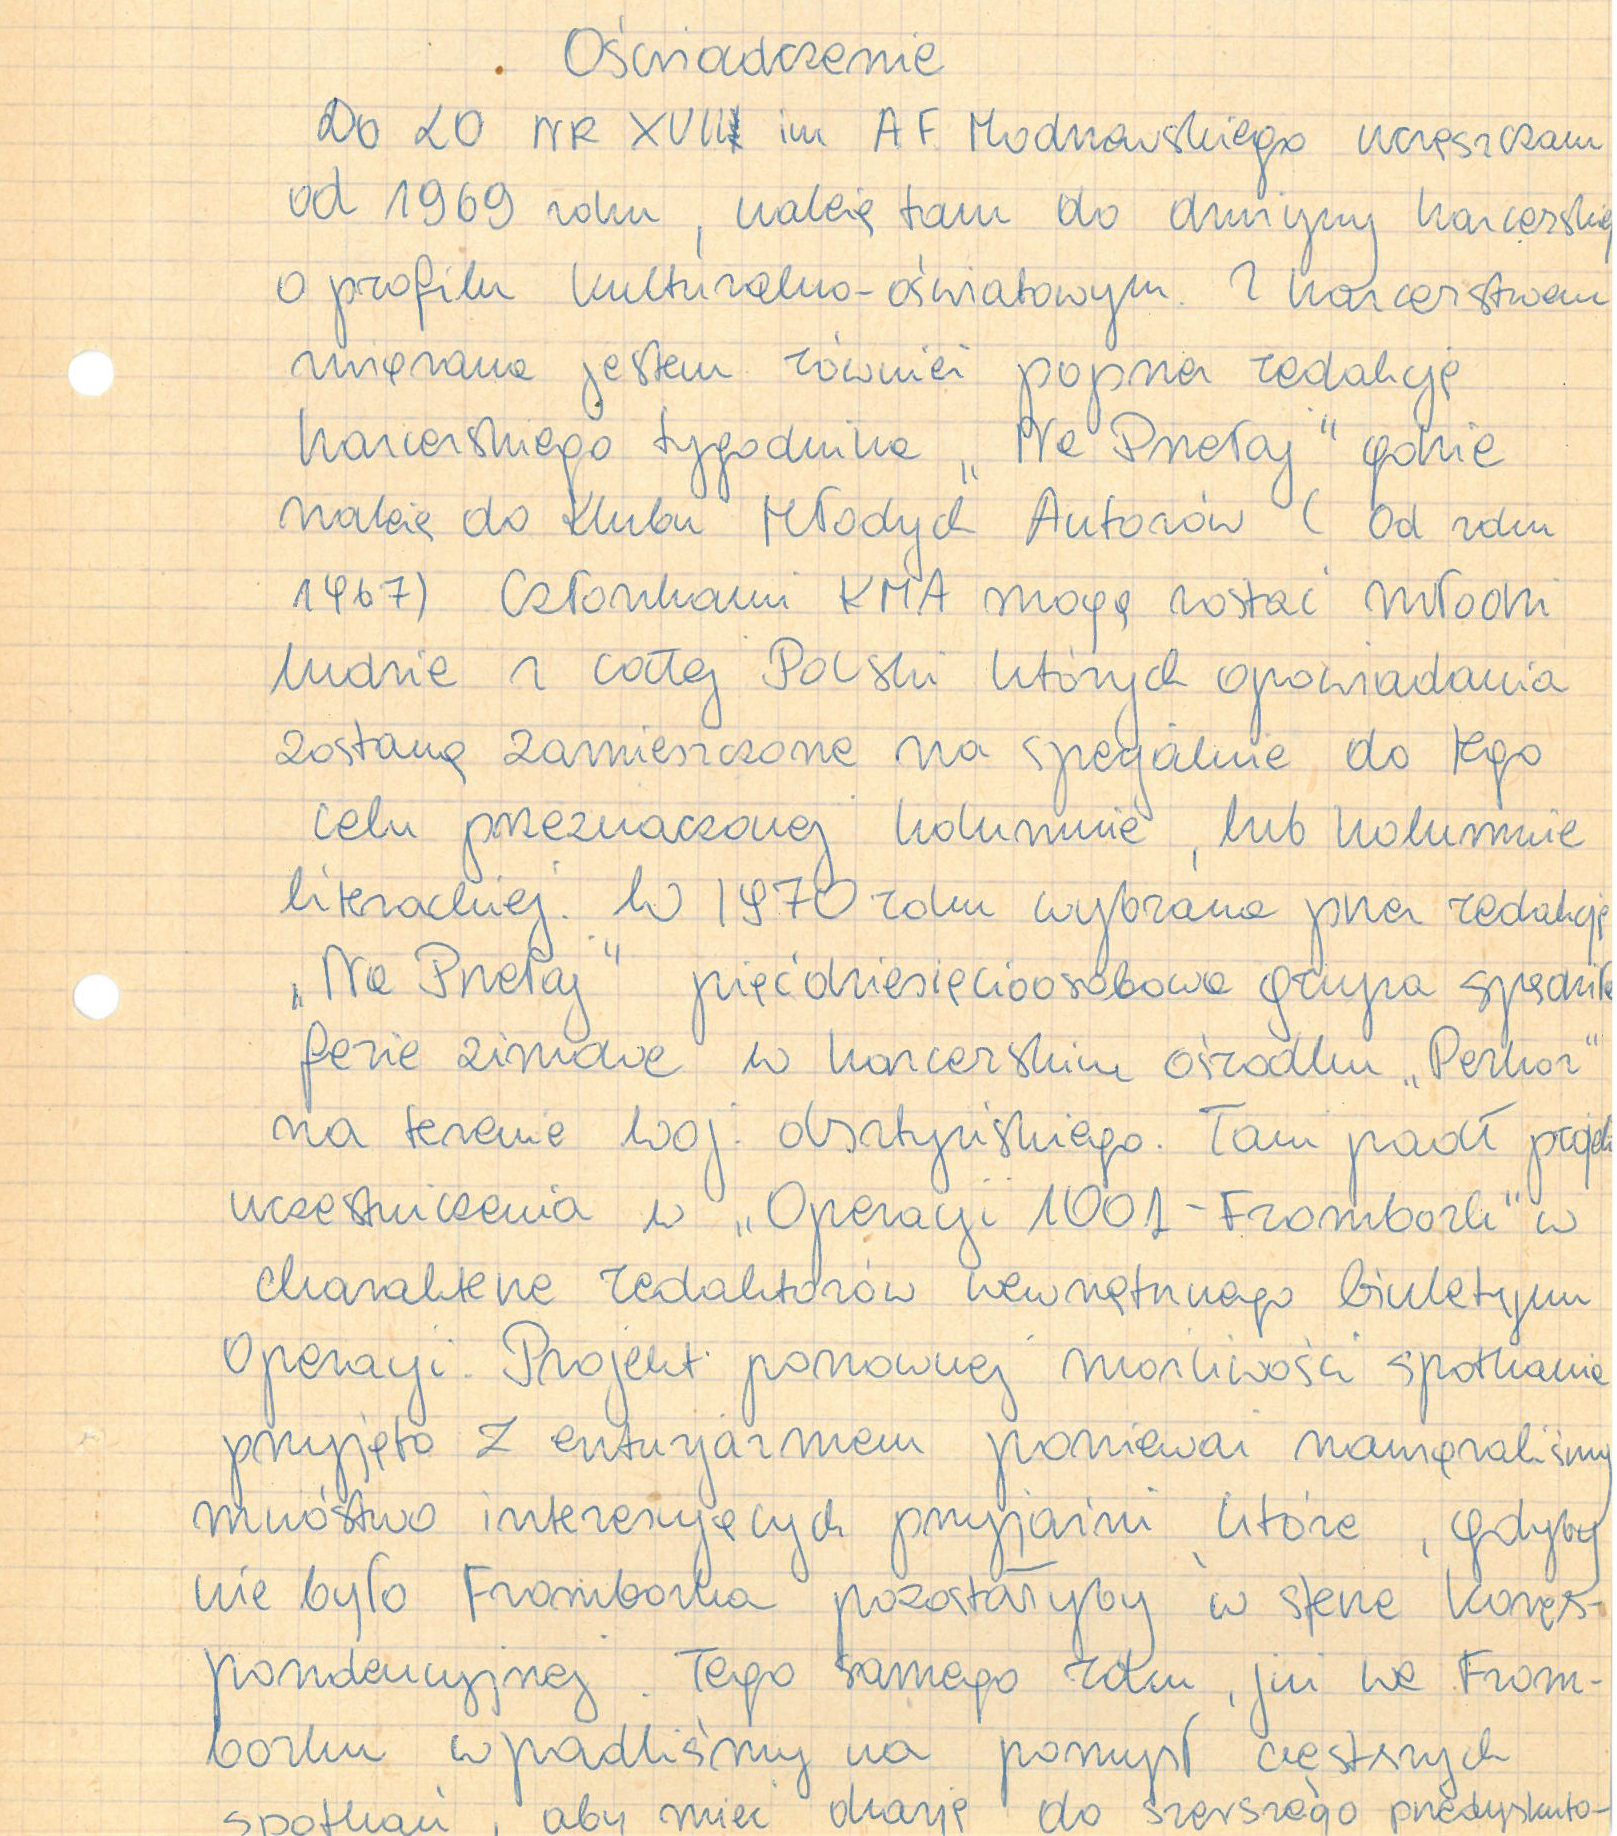 Oświadczenie
Do LO NR XVIII im A F. Modrzewskiego uczęszczam
od 1969 roku, należę tam do drużyny harcerskiej
o profilu kulturalno-oświatowym. Z harcerstwem
związana jestem również poprzez redakcję
harcerskiego tygodnika „Na Przełaj" gdzie
należę do Klubu Młodych Autorów (od roku
1967) Członkami KMA mogą zostać młodzi
ludzie z całej Polski których opowiadania
zostaną zamieszczone na specjalnie do tego
celu przeznaczonej kolumnie, lub kolumnie
literackiej. W 1970 roku wybrana przez redakcję
„Na Przełaj" pięćdziesięcioosobowa grupa spędziła
ferie zimowe w harcerskim ośrodku „Perkoz"
na terenie woj. olsztyńskiego. Tam padł projekt
uczestniczenia w „Operacji 1001-Frombork" w
charakterze redaktorów wewnętrznego biuletynu
Operacji. Projekt ponownej możliwości spotkania
przyjęto z entuzjazmem ponieważ nawiązaliśmy
mnóstwo interesujących przyjaźni które, gdyby
nie było Fromborka pozostałyby w sferze kores-
pondencyjnej. Tego samego roku, już we From-
borku wpadliśmy na pomysł częstszych
spotkań, aby mieć okazję do szerszego przedyskuto-